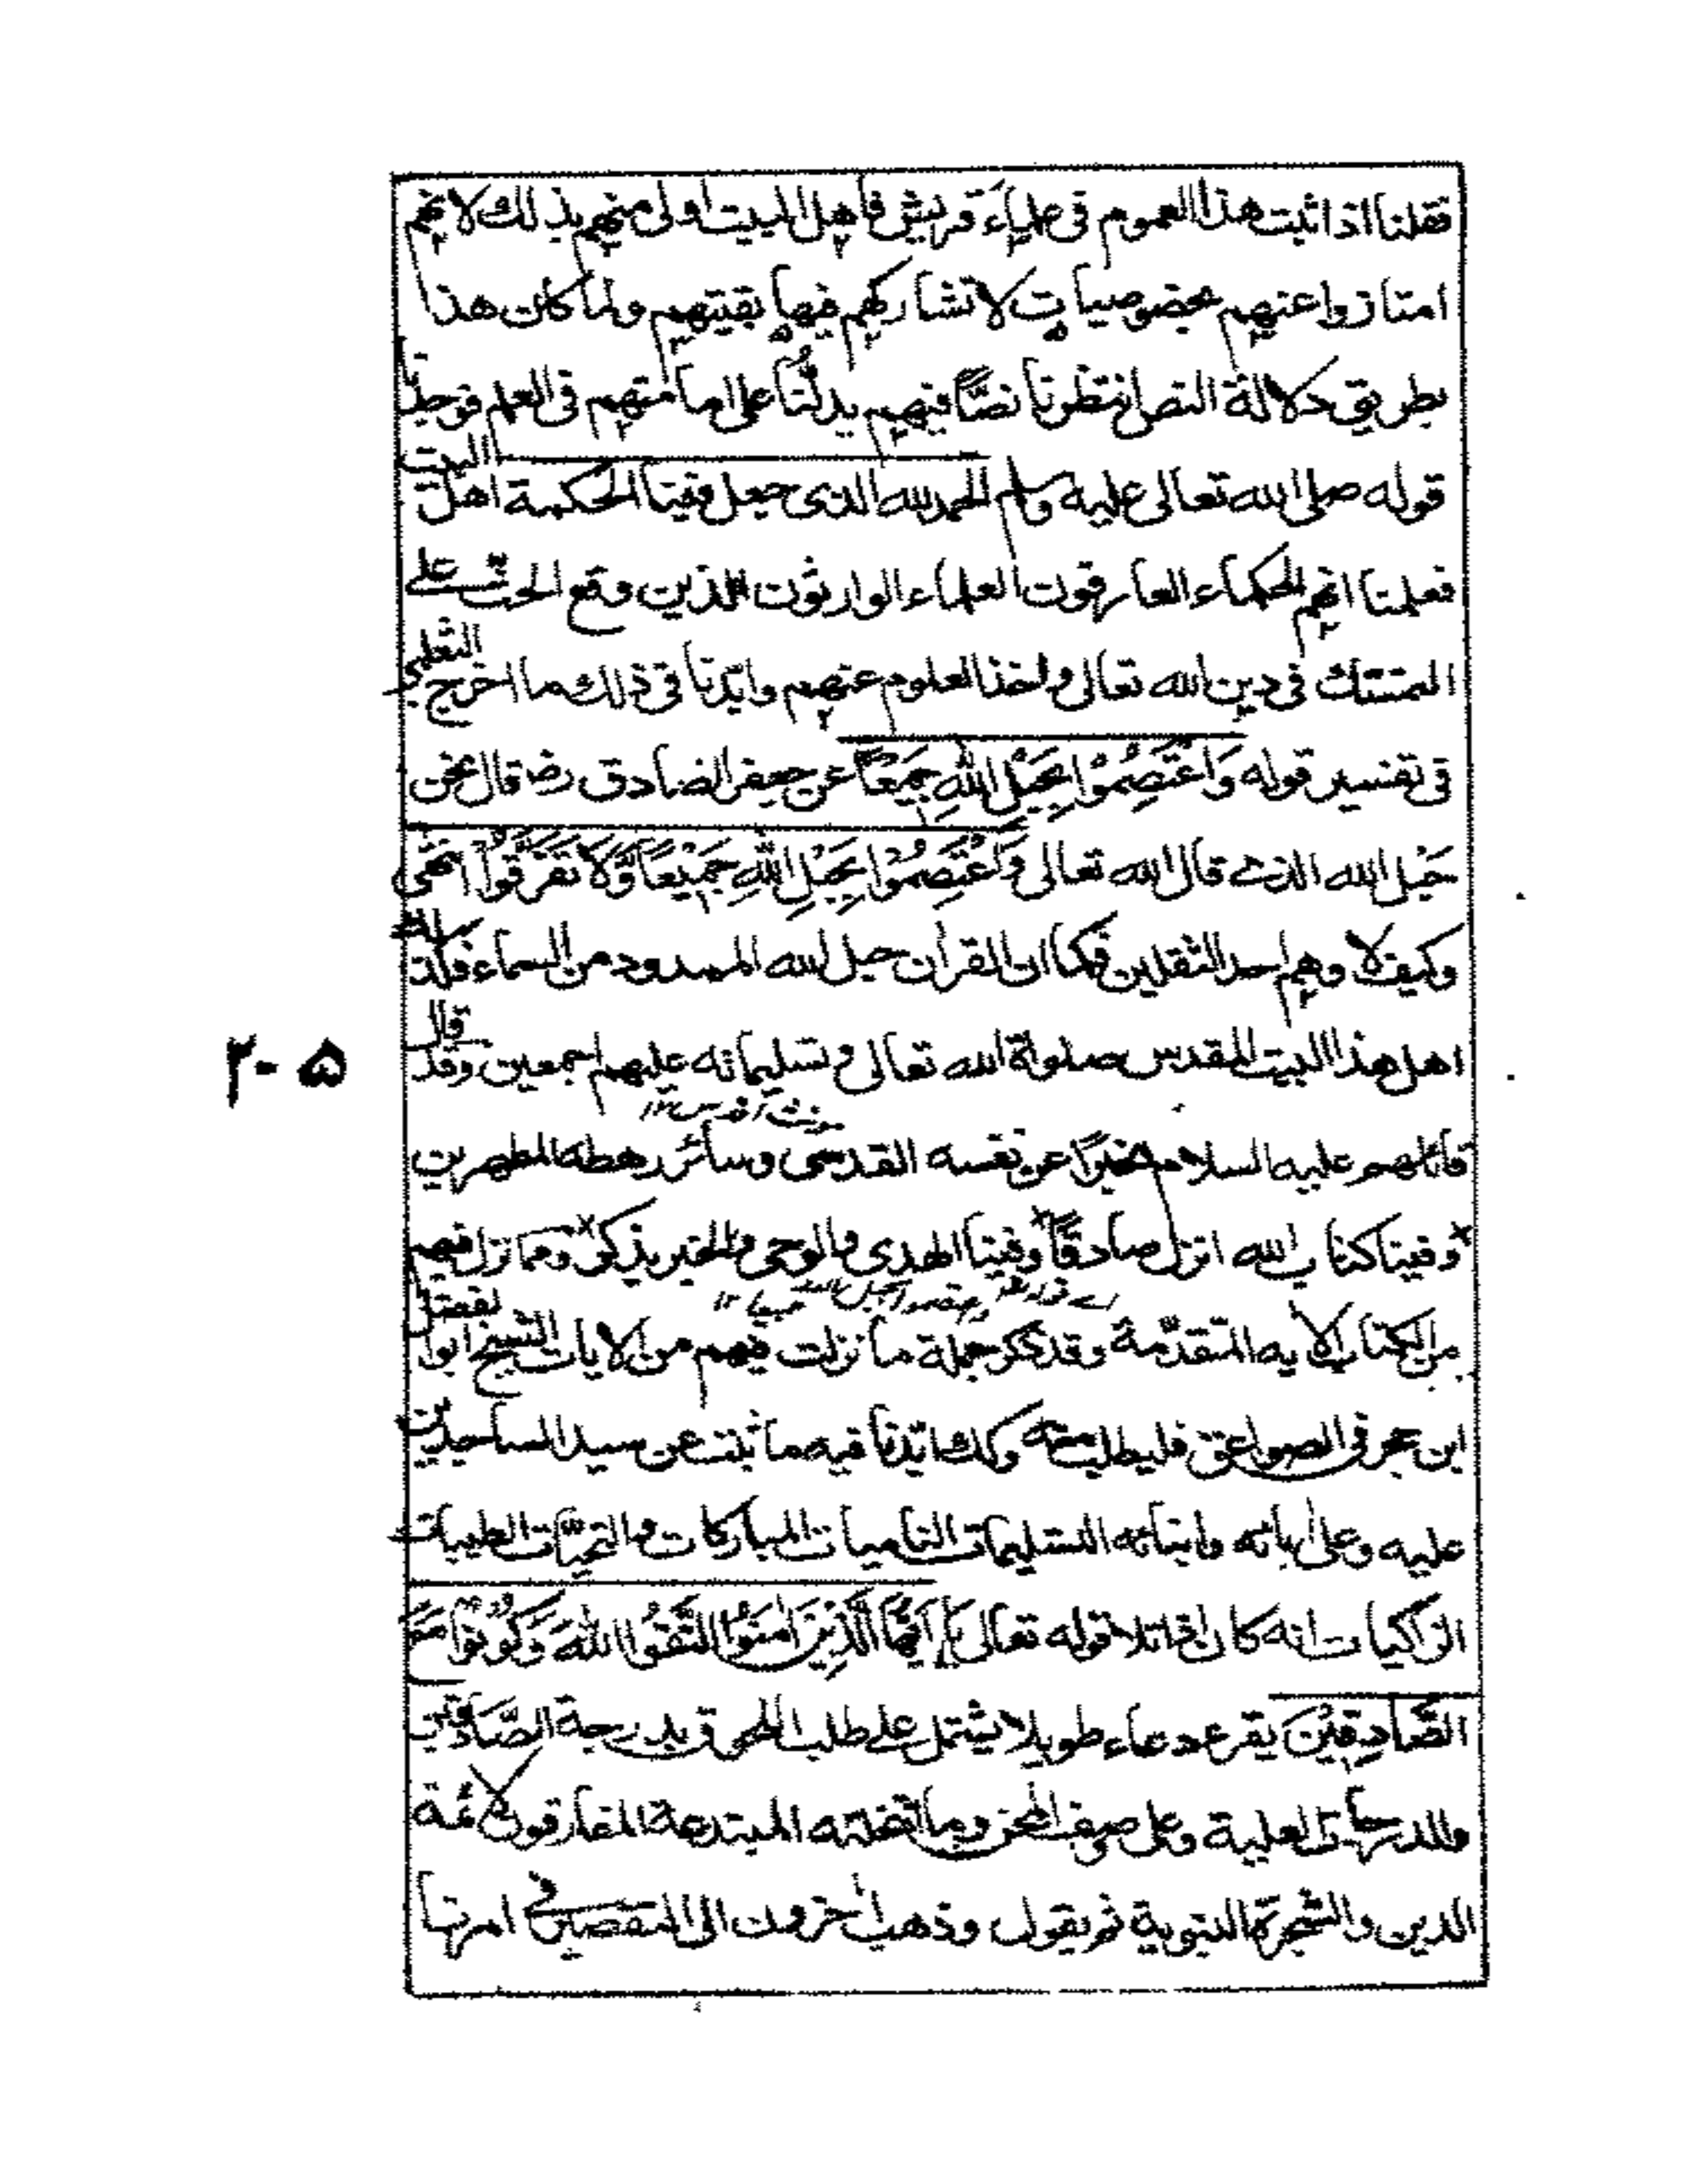 فقلنا اذا ثبت هذا العموم فى علماء قريش فاهل البيت اولى منهم بذلك لانهم
امتازوا عنهم بخصوصيات لا تشاركهم فيها بقيتهم ولما كان هذا
بطريق دلالة النص انتظرنا نصًّا فيهم يدلنا على امامتهم فى العلم فوجدنا
قوله صلى الله تعالى عليه وسلم الحمد لله الذى جعل فينا الحكمة اهل البيت
فعلمنا انهم الحكماء العارفون العلماء الوارثون الذين وقع الحث على
التمسك فى دين الله تعالى واخذ العلوم عنهم وايّدنا فى ذلك ما اخرج الثعلبى
فى تفسير قوله وَاعْتَصِمُوْا بِحَبْلِ اللّٰهِ جَمِيْعًا عن جعفر الصادق رضـ قال نحن
حَبْل الله الذى قال الله تعالى وَاعْتَصِمُوْا بِحَبْلِ اللّٰهِ جَمِيْعًا وَّلَا تَفَرَّقُوْا انتهى
وكيف لا وهم احد الثقلين فكما ان القران حبل الله الممدود من السماء فكذلك
اهل هذا البيت المقدس صلوة الله تعالى وتسليماته عليهم اجمعين وقد قال
٢٠٥
قائلهم عليه السلام مخبرًا عن نفسه القدسى وسائر رهطه المطهرين
وفينا كتاب الله انزل صادقًا وفينا الهدى والوحى والخير يذكر ومما نزل فيهم
من الكتاب الاية المتقدّمة وقد ذكر جملة ما نزلت فيهم من الايات الشيخ ابوالفضل
ابن حجر فى الصواعق فليطلب منه وكذلك ايّدنا فيه ما ثبت عن سيد الساجدين
عليه وعلى ابائه وابنائه التسليمات الناميات المباركات والتحيّات الطيبات
الزاكيات انه كان اذا تلا قوله تعالى يٰٓاَيُّهَا الَّذِيْنَ اٰمَنُوا اتَّقُوا اللّٰهَ وَكُوْنُوْا مَعَ
الصَّادِقِيْنَ يقرء دعاء طويلا يشتمل على طلب اللحوق بدرجة الصّادقين
والدرجات العلية وعلى وصف المحن وما انتحلته المبتدعة المفارقون لائمة
الدين والشجرة النبوية ثم يقول وذهب اٰخرون الى التقصير فى امرنا